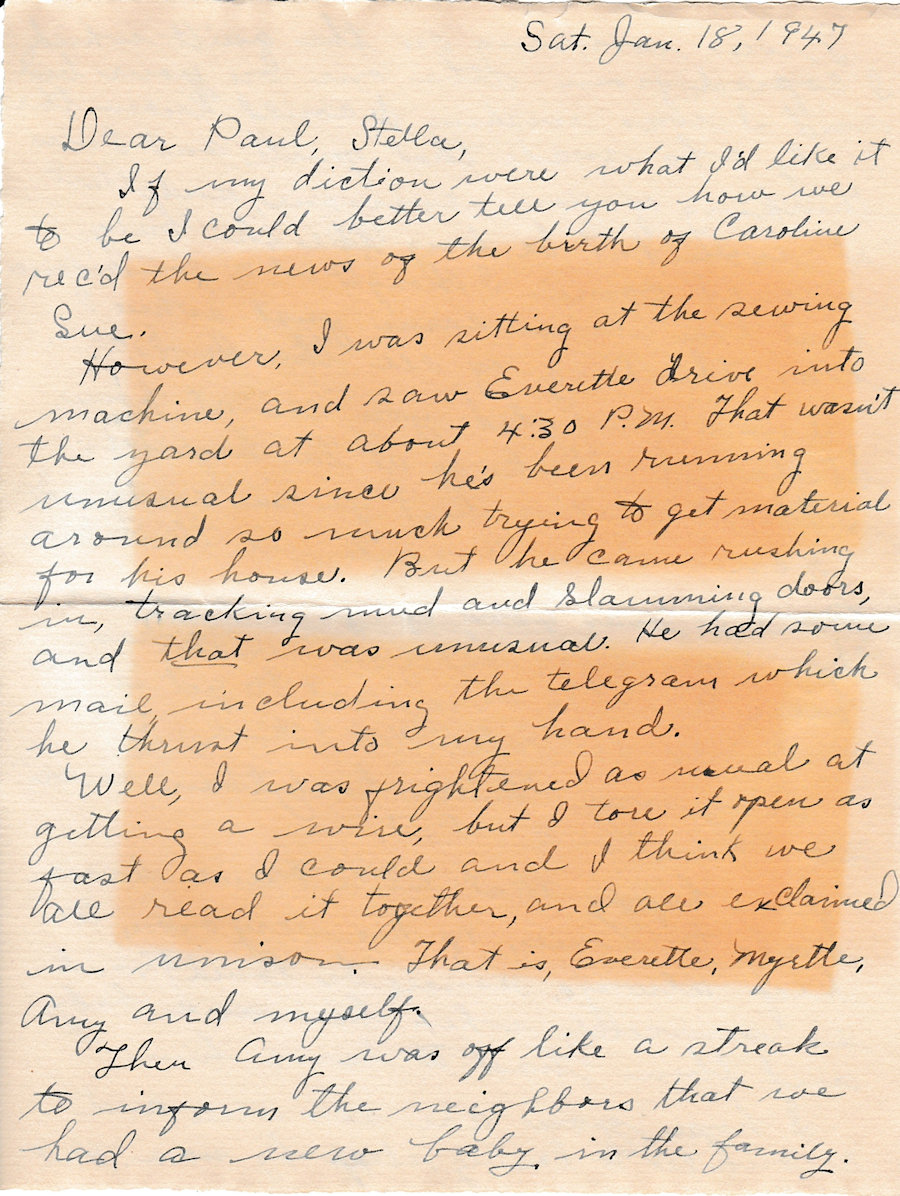 Sat. Jan. 18, 1947
Dear Paul, Stella,
If my diction were what I'd like it
to be I could better tell you how we
rec'd the news of the birth of Caroline
Sue.
However, I was sitting at the sewing
machine, and saw Everette drive into
the yard at about 4:30 P.M. That wasn't
unusual since he's been running
around so much trying to get material
for his house. But he came rushing
in, tracking mud and slamming doors,
and that was unusual. He had some
mail, including the telegram which
he thrust into my hand.
Well, I was frightened as usual at
getting a wire, but I tore it open as
fast as I could and I think we
all read it together, and all exclaimed
in unison. That is, Everette, Myrtle,
Amy and myself.
Then Amy was off like a streak
to inform the neighbors that we
had a new baby in the family.